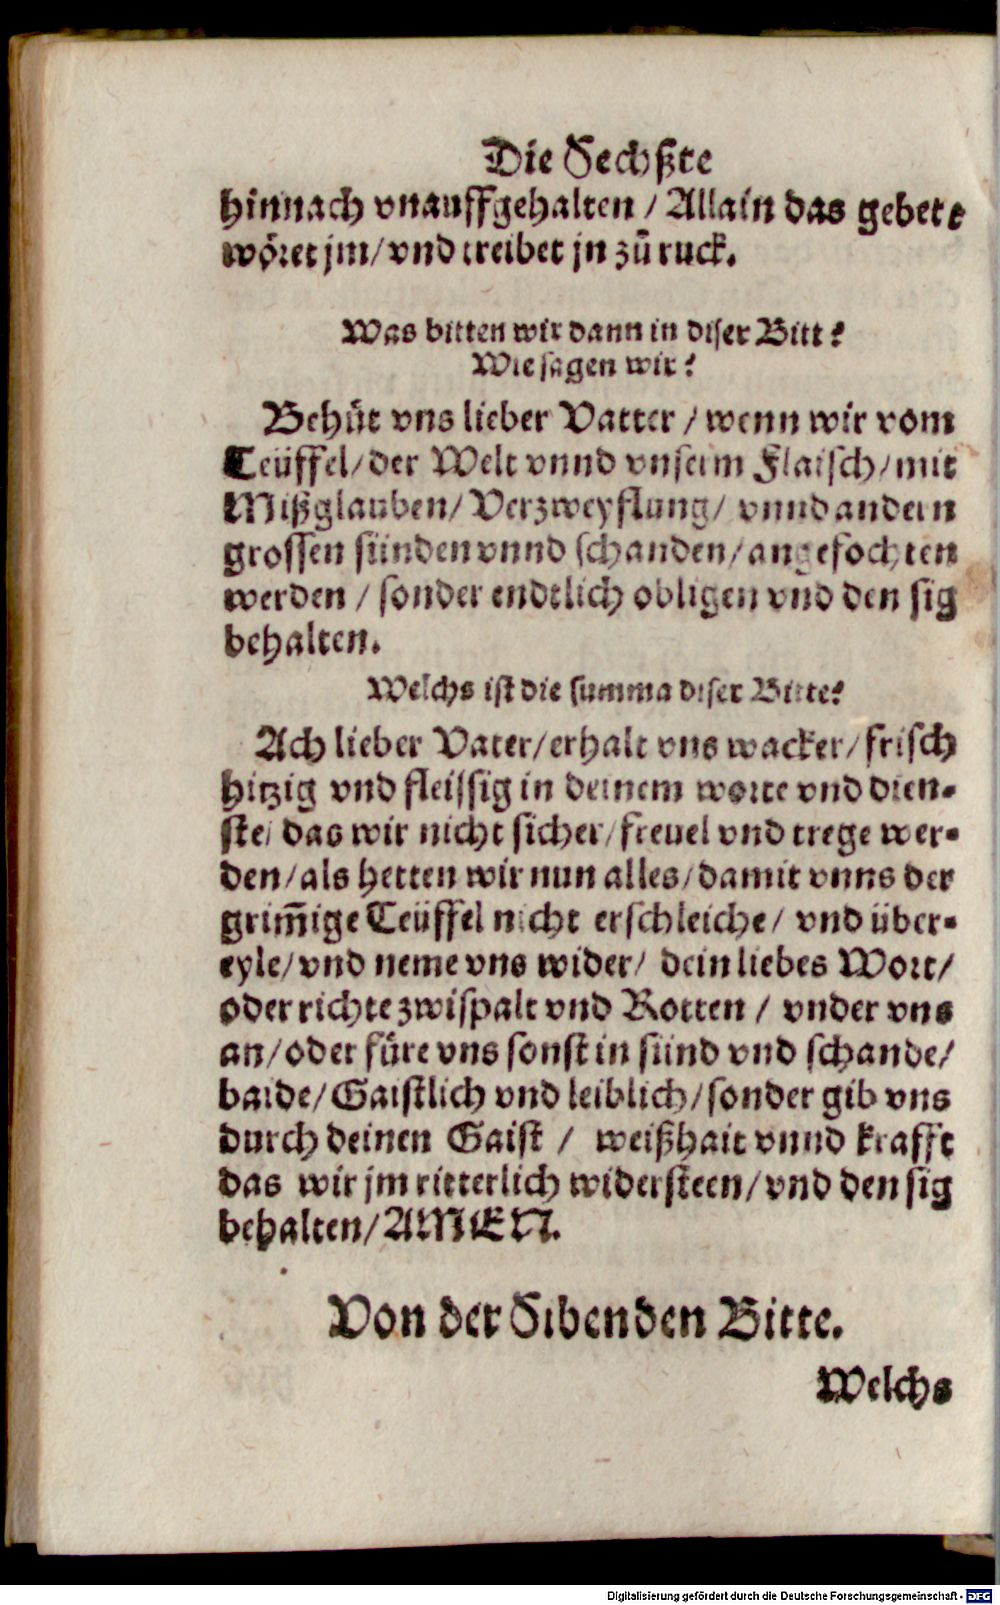 Die Sechßte
hinnach vnauffgehalten / Allain das gebett
wöret jm / vnd treibet jn zů ruck.
Was bitten wir dann in diser Bitt?
Wie sagen wir?
Behüt vns lieber Vatter / wenn wir vom
Teüffel / der Welt vnnd vnserm Flaisch / mit
Mißglauben / Verzweyflung / vnnd andern
grossen sünden vnnd schanden / angefochten
werden / sonder endtlich obligen vnd den sig
behalten.
Welchs ist die summa diser Bitte?
Ach lieber Vater / erhalt vns wacker / frisch
hitzig vnd fleissig in deinem worte vnd dien-
ste / das wir nicht sicher / freuel vnd trege wer-
den / als hetten wir nun alles / damit vnns der
grim̃ige Teüffel nicht erschleiche / vnd über-
eyle / vnd neme vns wider / dein liebes Wort /
oder richte zwispalt vnd Rotten / vnder vns
an / oder füre vns sonst in sünd vnd schande /
baide / Gaistlich vnd leiblich / sonder gib vns
durch deinen Gaist / weißhait vnnd krafft
das wir jm ritterlich widersteen / vnd den sig
behalten / AMEN.
Von der Sibenden Bitte.
Welchs
Digitalisierung gefördert durch die Deutsche Forschungsgemeinschaft - DFG